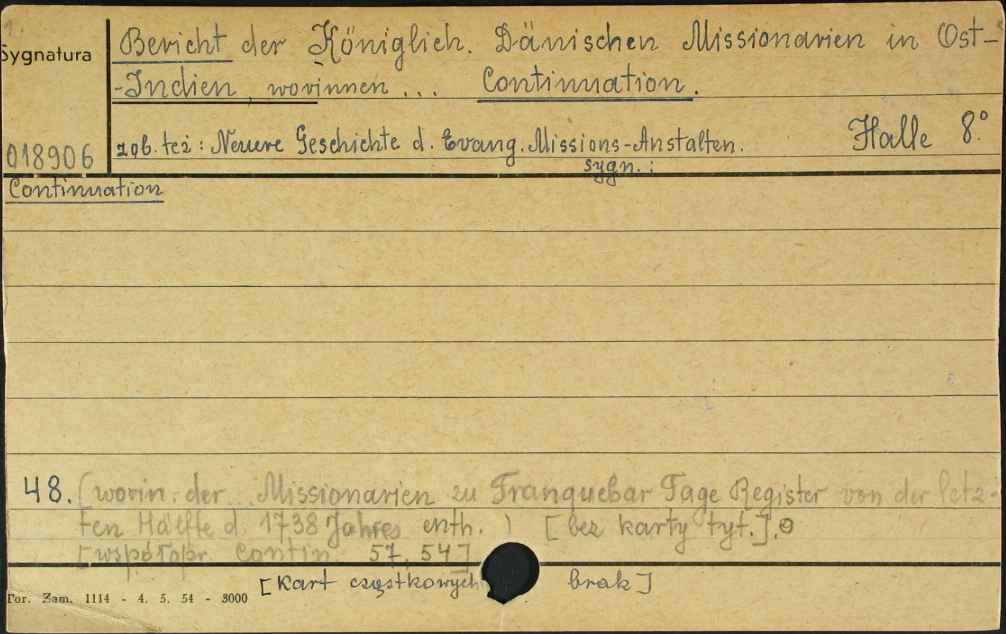 Sygnatura
Bericht der Königlich. Dänischen Missionarien in Ost-
-Indien, worinnen ... Continuation.
018906
zob. też: Neuere Geschichte d. Evang. Missions-Anstalten. Halle 8.°
sygn.:
Continuation
48. (worin. der .. Missionarien zu Tranquebar Tage Register von der letz-
ten Hälfte d. 1738 Jahres enth.) [bez karty tyt.].
[współopr. Contin 57, 54]
[Kart cząstkowych brak]
Tor. Zam. 1114 - 4. 5. 54 - 3000